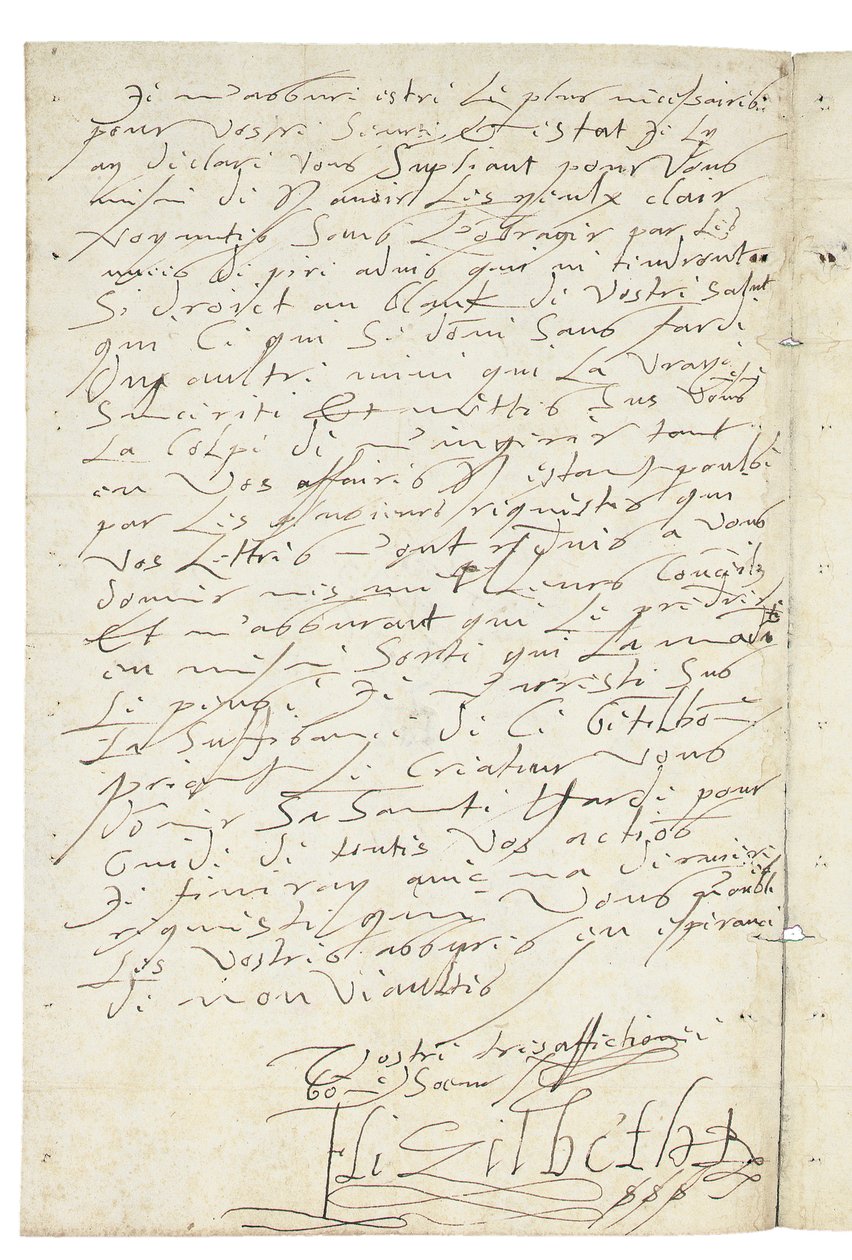 Je m'assure estre le plus necessaires
pour vostre seurte et estat Je le
ay declare vous supliant pour vous
mesme de n avoir les yeulx clair
voyantes sans l'obragir par les
de pire advis qui ne tiendront
si droict au blank de vostre salut
que ce qui se done sans farde
Ou aultre mine que la vraye
sincerite Et mettes sus vous
la colpe de m'ingerer tant
en vos affaires n estant poulse
par les plusieurs requestes que
vos Lettres m'ont requis a vous
donner mes meilleurs conseils
Et m'assurant que le prendre
en mesme sorte que la
le pense Je m'arreste sus
la suffisance de ce bone
priant le Createur vous
doner Sa Saincte garde pour
Guide de toutes vos actiõs
Je finiray avec ma derniere
requeste que vous n'oublie
Les vostres assures en esperance
de non viaultes
Vostre tres affectionee
bone Soeur
Elizabeth R